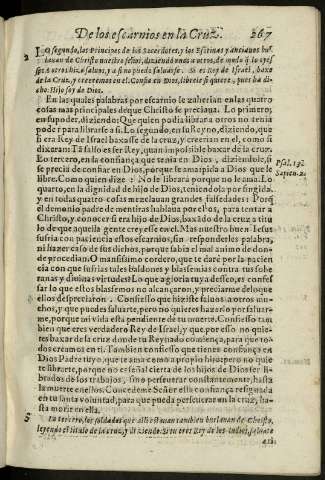 De los escarnios en la Cruz. 267
2 Lo segundo, los Principes de los Sacerdotes, y los Escribas y ancianos bur
lauan de Christo nuestro señor, diziendo vnos a otros, de modo q̃ lo oyes
se: A otros hizo saluos, y a si no puede saluarse. Si es Rey de Israel, baxe
de la Cruz, y creeremos en el. Confia en Dios, librele si quiere, pues ha di-
cho: Hijo soy de Dios.
En las quales palabras por escarnio le zaherian estas quatro
cosas mas principales de que Christo se preciaua. Lo primero,
en su poder, diziendo: Que quien podia librara otros no tenia
pode r para librarse a si. Lo segundo, en su Reyno, diziendo, que
si era Rey de Israel baxasse de la cruz, y creerian en el, como si
dixeran: Tã falso es ser Rey, quan impossible baxar de la cruz.
Lo tercero, en la confiança que tenia en Dios, diziendole, si
se precia de confiar en Dios, porque se ama, pida a Dios que
le libre. Como quien dize: No le librará porque no le ama. Lo
quarto, en la dignidad de hijo de Dios, teniendola por fingida.
y en todas quatro cosas mezclauan grandes falsedades: Porq̃
el demonio padre de mentiras hablaua por ellos, para tentar a
Christo, y conocer si era hijo de Dios, baxãdo de la cruz a titu
lo de que aquella gente creyesse en el. Mas nuestro buen Iesus
sufria con paciencia estos escarnios, sin responderles palabra,
ni hazer caso de sus dichos, porque sabia el mal animo de don-
de procedian. O mansissimo cordero, que te daré por la pacien
cia con que sufrias tales baldones y blasfemias contra tus sobe
ranas y diuinas virtudes? Lo que a gloria tuya desseo, es confes
sar lo que estos blasfemos no alcançaron, y preciarme de lo que
ellos despreciaron. Confiesso que hiziste saluos a otros mu-
chos, y que puedes saluarte, pero no quieres hazerlo por saluar-
me, porque mi vida está pendiente de tu muerte. Confiesso tam
bien que eres verdadero Rey de Israel, y que por esso no quie-
res baxar de la cruz donde tu Reynado comiença, para que to-
dos creamos en ti. Tambien confiesso que tienes confiança en
Dios Padre tuyo, que te ama como a proprio hijo: pero no quie
re librarte, porque no es señal cierta de los hijos de Dios ser li-
brados de los trabajos, sino perseuerar constantemente, hasta
la muerte en ellos. Concedeme Señor essa confiança resignada
en tu santa voluntad, para que pueda perseuerar en la cruz, ha-
sta morir en ella.
Lo tercero, los soldados que alli estauan tambien burlauan de Christo,
leyendo el titulo de la cruz, y diziendo: Si tu eres Rey de los Iudios, saluate
Psal.
Sapien. 2.